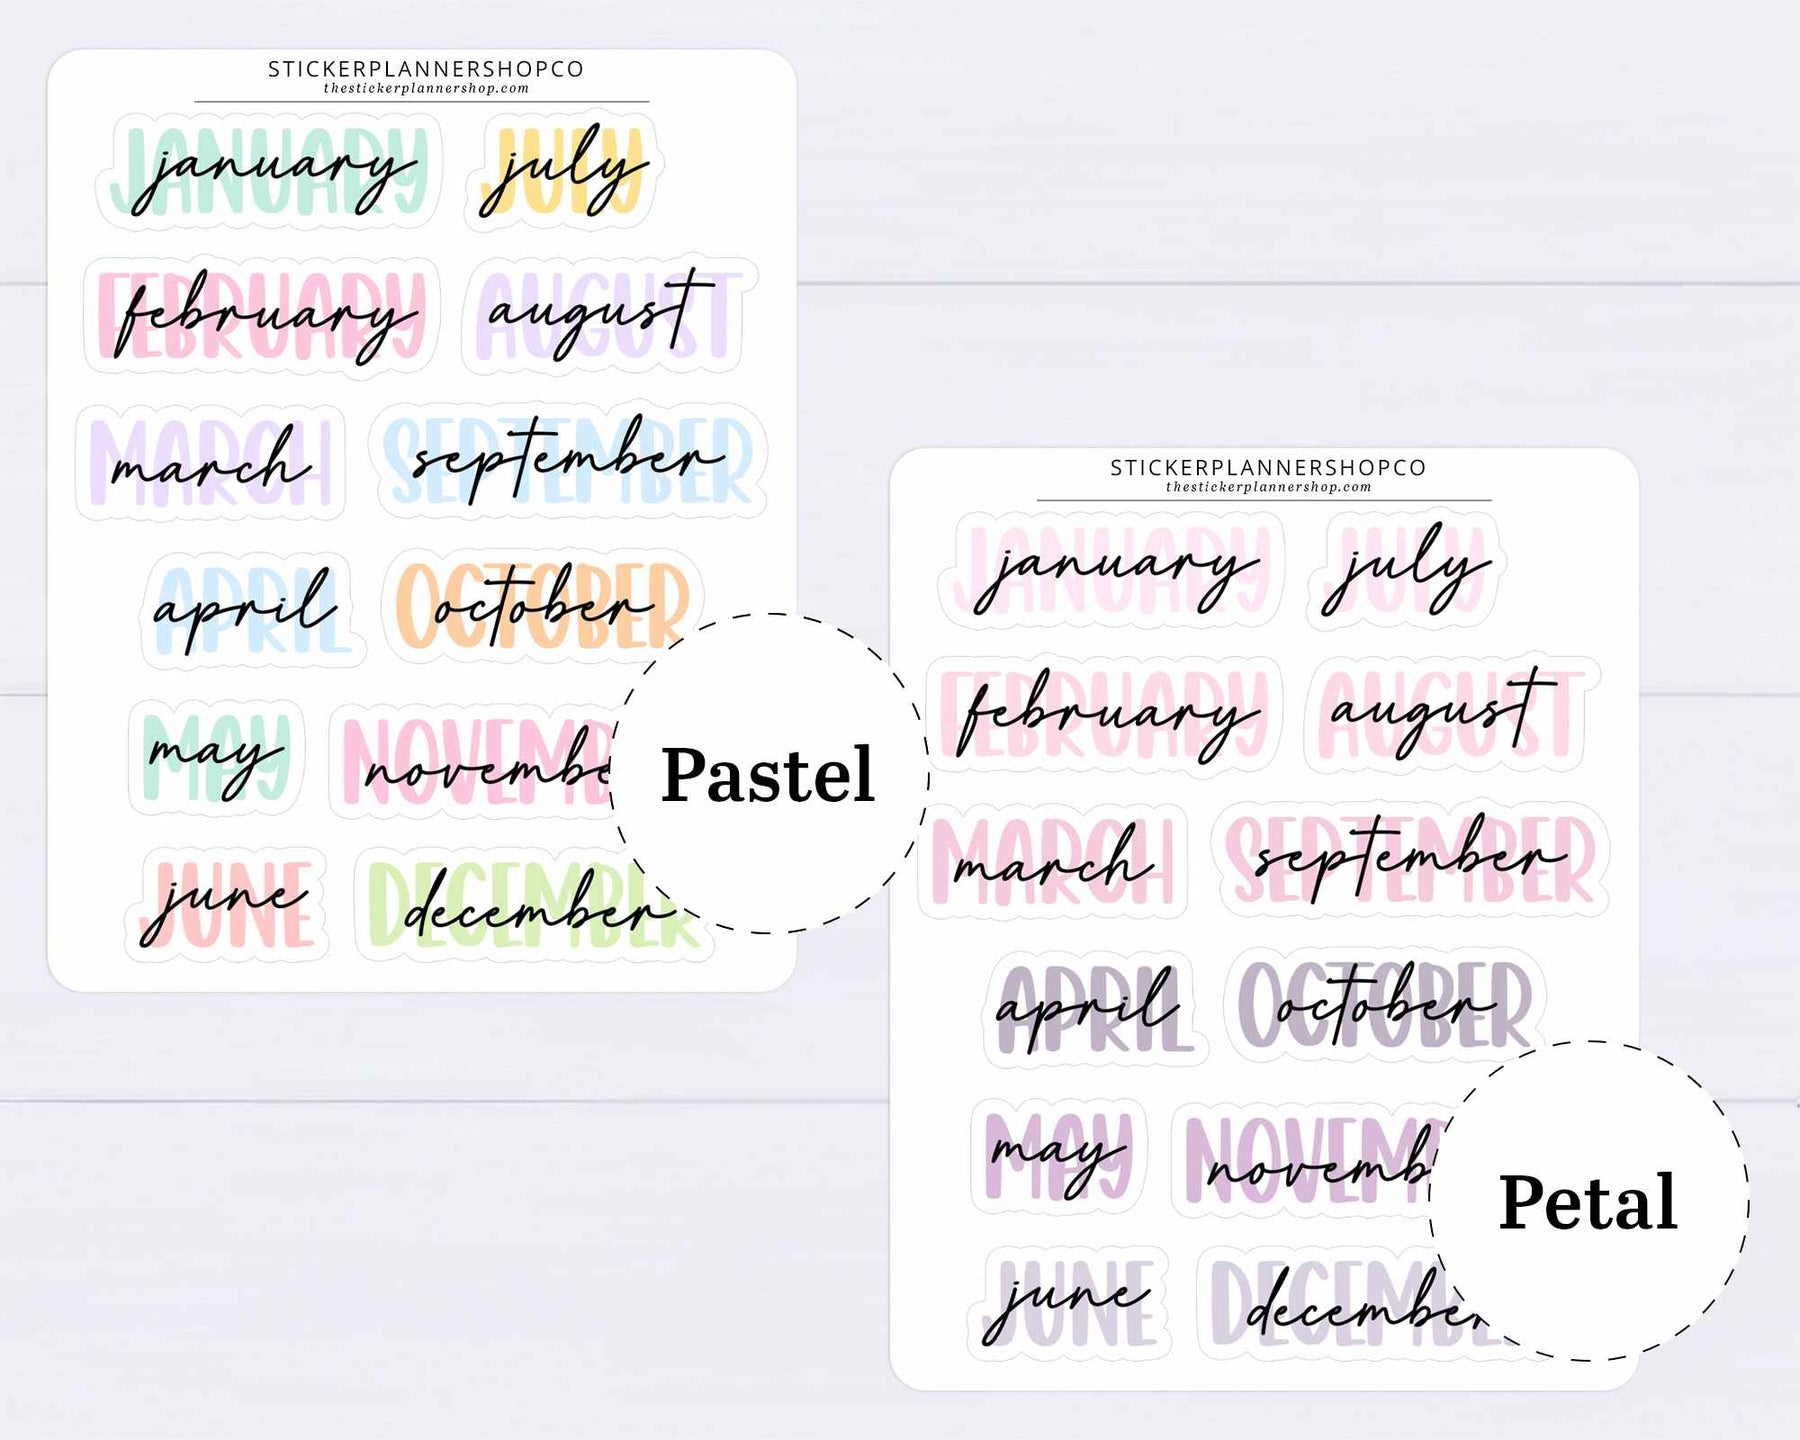 STICKERPLANNERSHOPCO
thestickerplannershop.com
JANUARY
january
JULY
july
FEBRUARY
february
AUGUST
august
MARCH
march
SEPTEMBER
september
APRIL
april
OCTOBER
october
MAY
may
NOVEMB
novembe
JUNE
june
DECEMBER
december
Pastel
STICKERPLANNERSHOPCO
thestickerplannershop.com
JANUARY
january
JULY
july
FEBRUARY
february
AUGUST
august
MARCH
march
SEPTEMBER
september
APRIL
april
OCTOBER
october
MAY
may
NOVEM
novemb
JUNE
june
DECEM
december
Petal